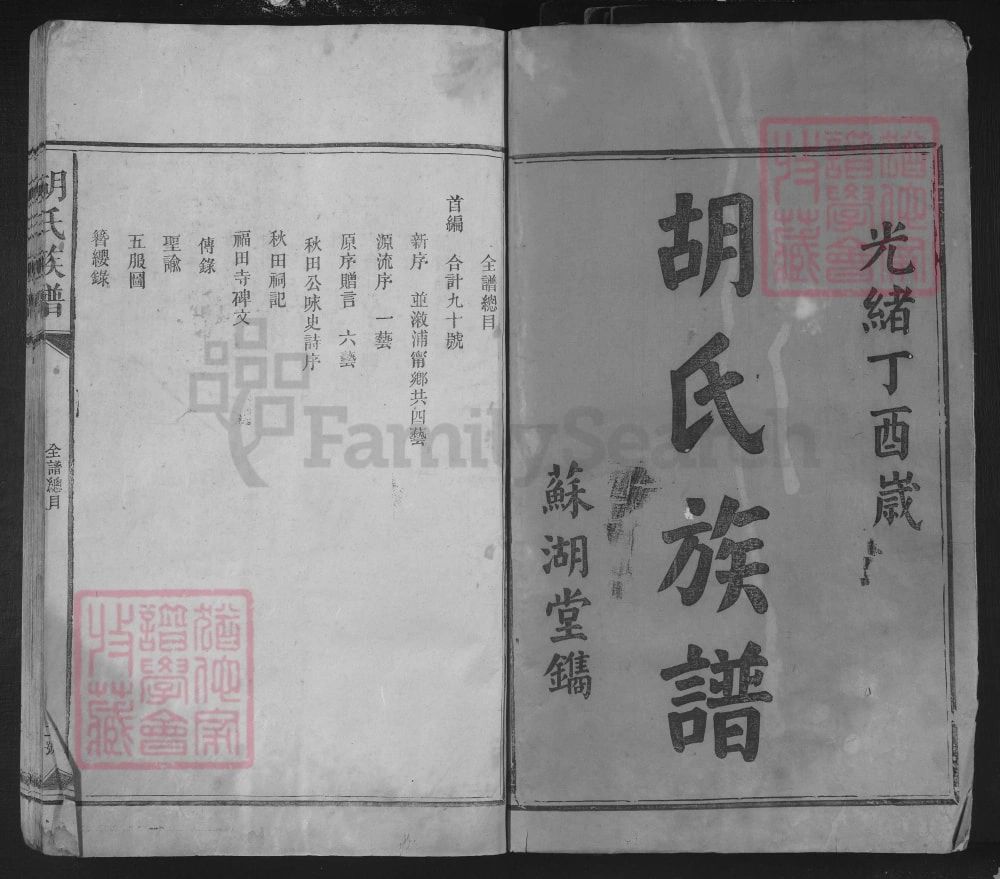 光緒丁酉歲
胡氏族譜
蘇湖堂鐫
全譜總目
首編 合計九十號
新序 並漵浦甯鄉共四藝
源流序 一藝
原序贈言 六藝
秋田公味史詩序
秋田祠記
福田寺碑文
傳錄
聖諭
五服圖
簪纓錄
胡氏族譜
全譜總目
FamilySearch
譜學會